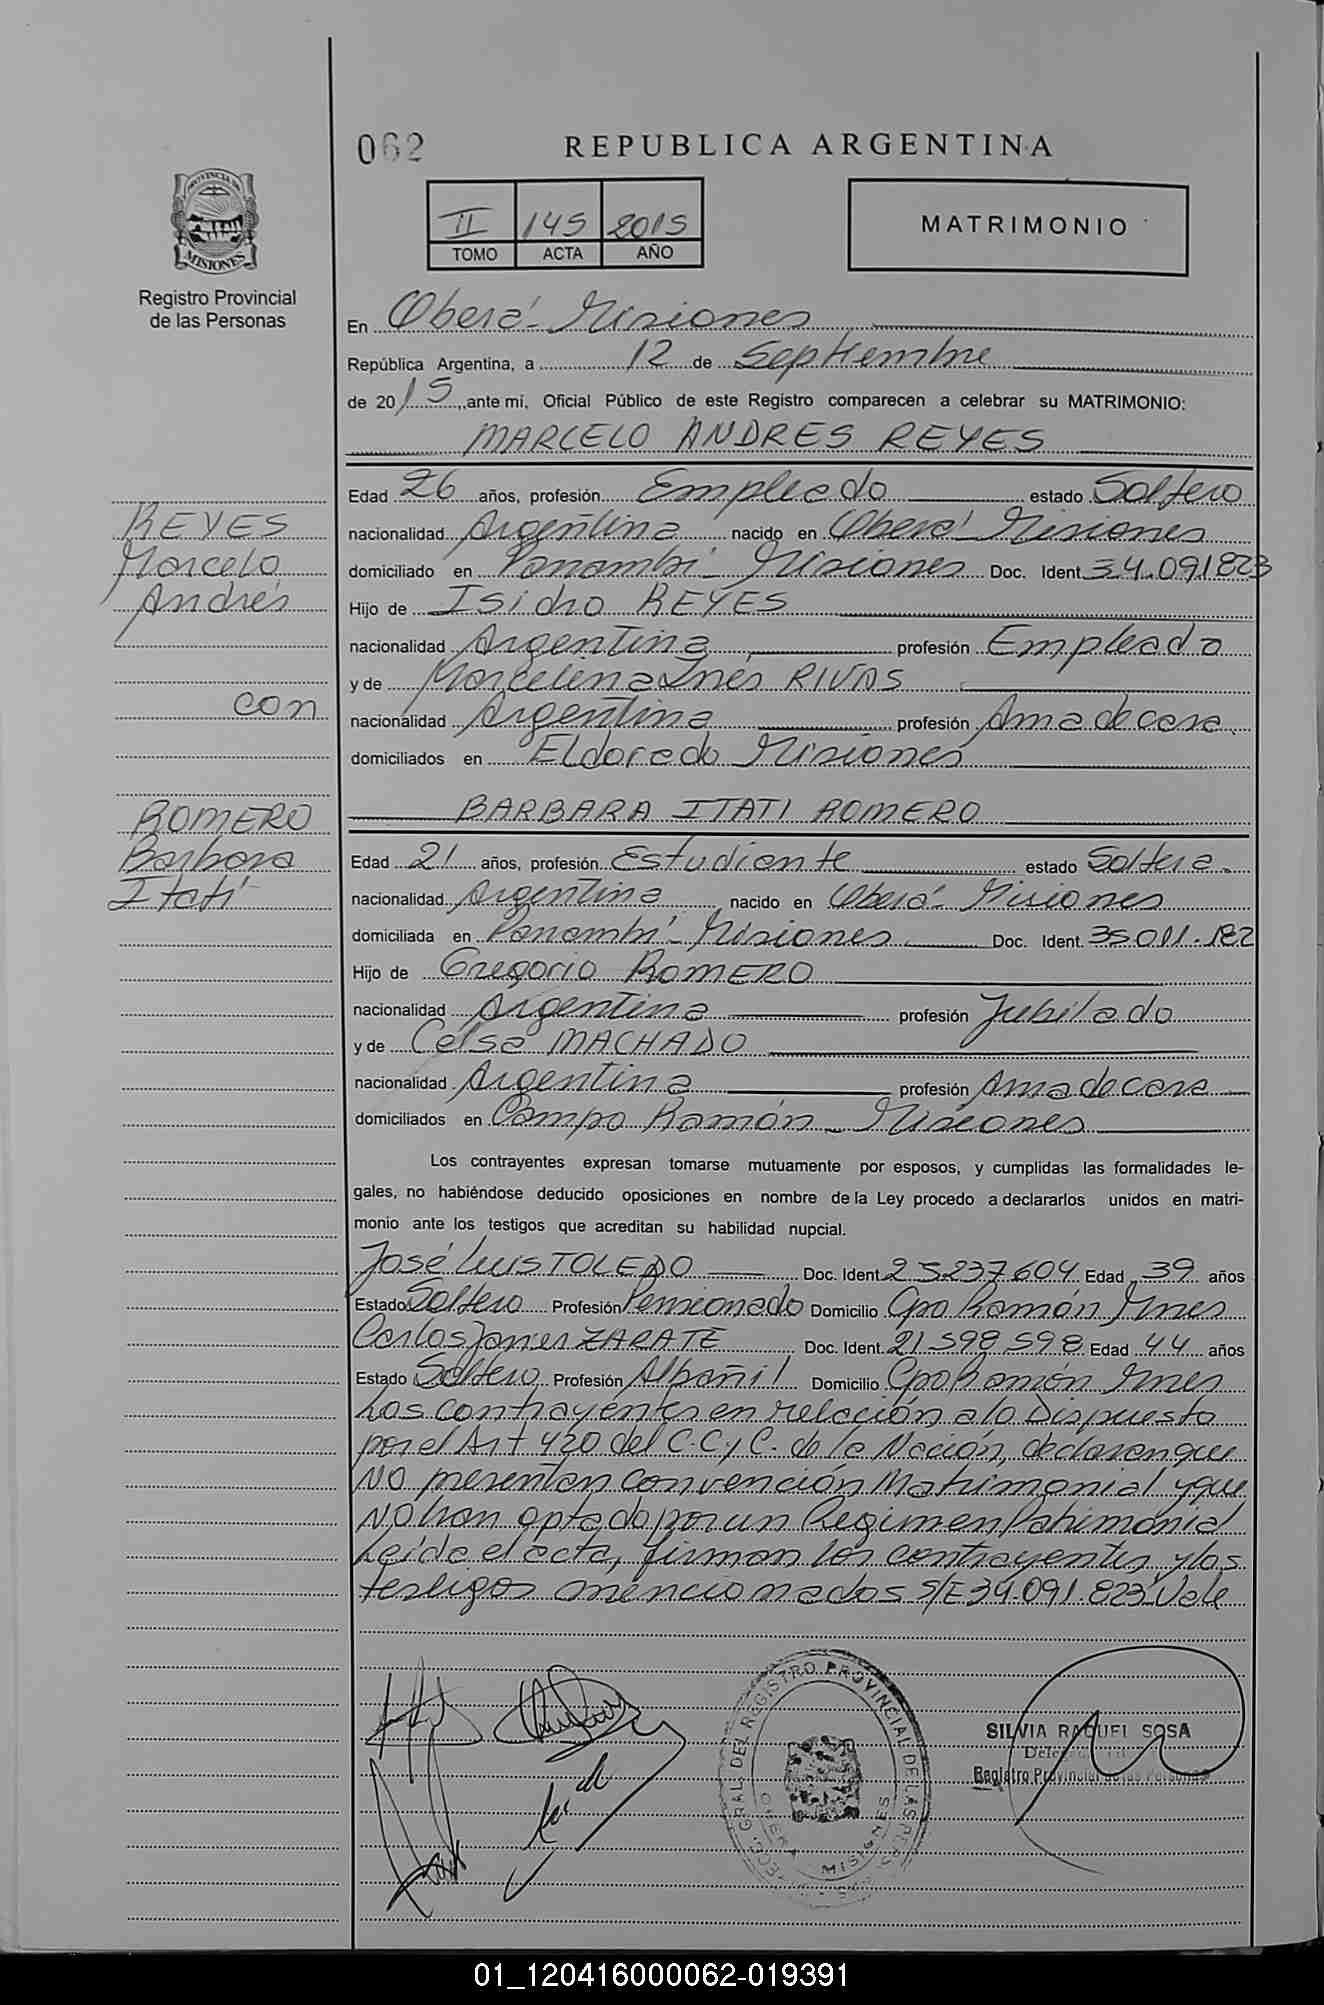 062
REPUBLICA ARGENTINA
II 145 2015
TOMO ACTA AÑO
MATRIMONIO
PROVINCIA DE
MISIONES
Registro Provincial
de las Personas
En Oberá - Misiones
República Argentina, a 12 de Septiembre
de 2015, ante mi, Oficial Público de este Registro comparecen a celebrar su MATRIMONIO:
MARCELO ANDRES REYES
Edad 26 años, profesión Empleado estado Soltero
nacionalidad Argentina nacido en Oberá - Misiones
domiciliado en Panambí - Misiones Doc. Ident 34.091823
Hijo de Isidro REYES
nacionalidad Argentina profesión Empleado
y de Marcelina Inés RIVAS
nacionalidad Argentina profesión Ama de casa
domiciliados en Eldorado Misiones
REYES
Marcelo
Andrés
con
ROMERO
Barbara
Itatí
BARBARA ITATI ROMERO
Edad 21 años, profesión Estudiante estado Soltera
nacionalidad Argentina nacido en Oberá - Misiones
domiciliada en Panambí - Misiones Doc. Ident. 35011.182
Hijo de Gregorio ROMERO
nacionalidad Argentina profesión Jubilado
y de Celsa MACHADO
nacionalidad Argentina profesión Ama de casa
domiciliados en Campo Ramón - Misiones
Los contrayentes expresan tomarse mutuamente por esposos, y cumplidas las formalidades le-
gales, no habiéndose deducido oposiciones en nombre de la Ley procedo a declararlos unidos en matri-
monio ante los testigos que acreditan su habilidad nupcial.
José Luis TOLEDO Doc. Ident 25237604 Edad 39 años
Estado Soltero Profesión Pensionado Domicilio Cpo Ramón Mnes
Carlos Javier ZARATE Doc. Ident. 21.598.598 Edad 44 años
Estado Soltero Profesión Albañil Domicilio Cpo Ramón Mnes
Los contrayentes en relación a lo Dispuesto
por el Art 420 del C.C y C. de la Nación, declaran que
NO presentan convención Matrimonial y que
NO han optado por un Regimen Patrimonial
Leida el acta, firman los contrayentes y los
testigos mencionados S/E 34.091.823 Vale
GRAL. DEL REGISTRO PROVINCIAL DE LAS
OBERA MISIONES
SILVIA RAQUEL SOSA
Registro Provincial de las Personas
01_120416000062-019391